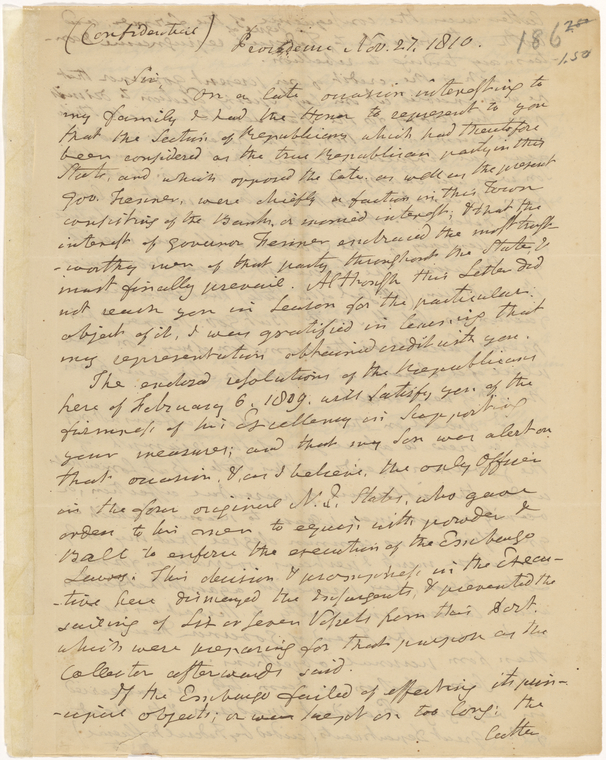 (Confidential)
Providence Nov. 27. 1810.
186
1.50
Sir, On a late occasion interesting to
my family I had the Honor to represent to you
that the Section of Republicans, which had theretofore
been considered as the true Republican party in this
State, and which opposed the late, as well as the present
Gov. Fenner, were chiefly a faction in this Town
consisting of the Bank, or monied interest; & that the
interest of Governor Fenner embraced the most trust-
-worthy men of that party throughout the State, &
must finally prevail. Although this Letter did
not reach you in Season for the particular
object of it, I was gratified in learning that
my representation obtained credit with you.
The enclosed resolutions of the Republicans
here of February 6. 1809. will satisfy you of the
firmness of his Excellency in Supporting
your measures; and that my Son was alert on
that occasion, & as I believe, the only Officer
in the four original N. E. States, who gave
orders to his men to equip with powder &
Ball to enforce the execution of the Embargo
Laws. This decision & promptness in the Execu-
-tive here dismayed the Insurgents, & prevented the
sailing of Six or Seven Vessels from this Port.
which were preparing for that purpose as the
Collector afterwards said.
If the Embargo failed of effecting its prin-
-cipal objects; or was kept on too long; the
latter